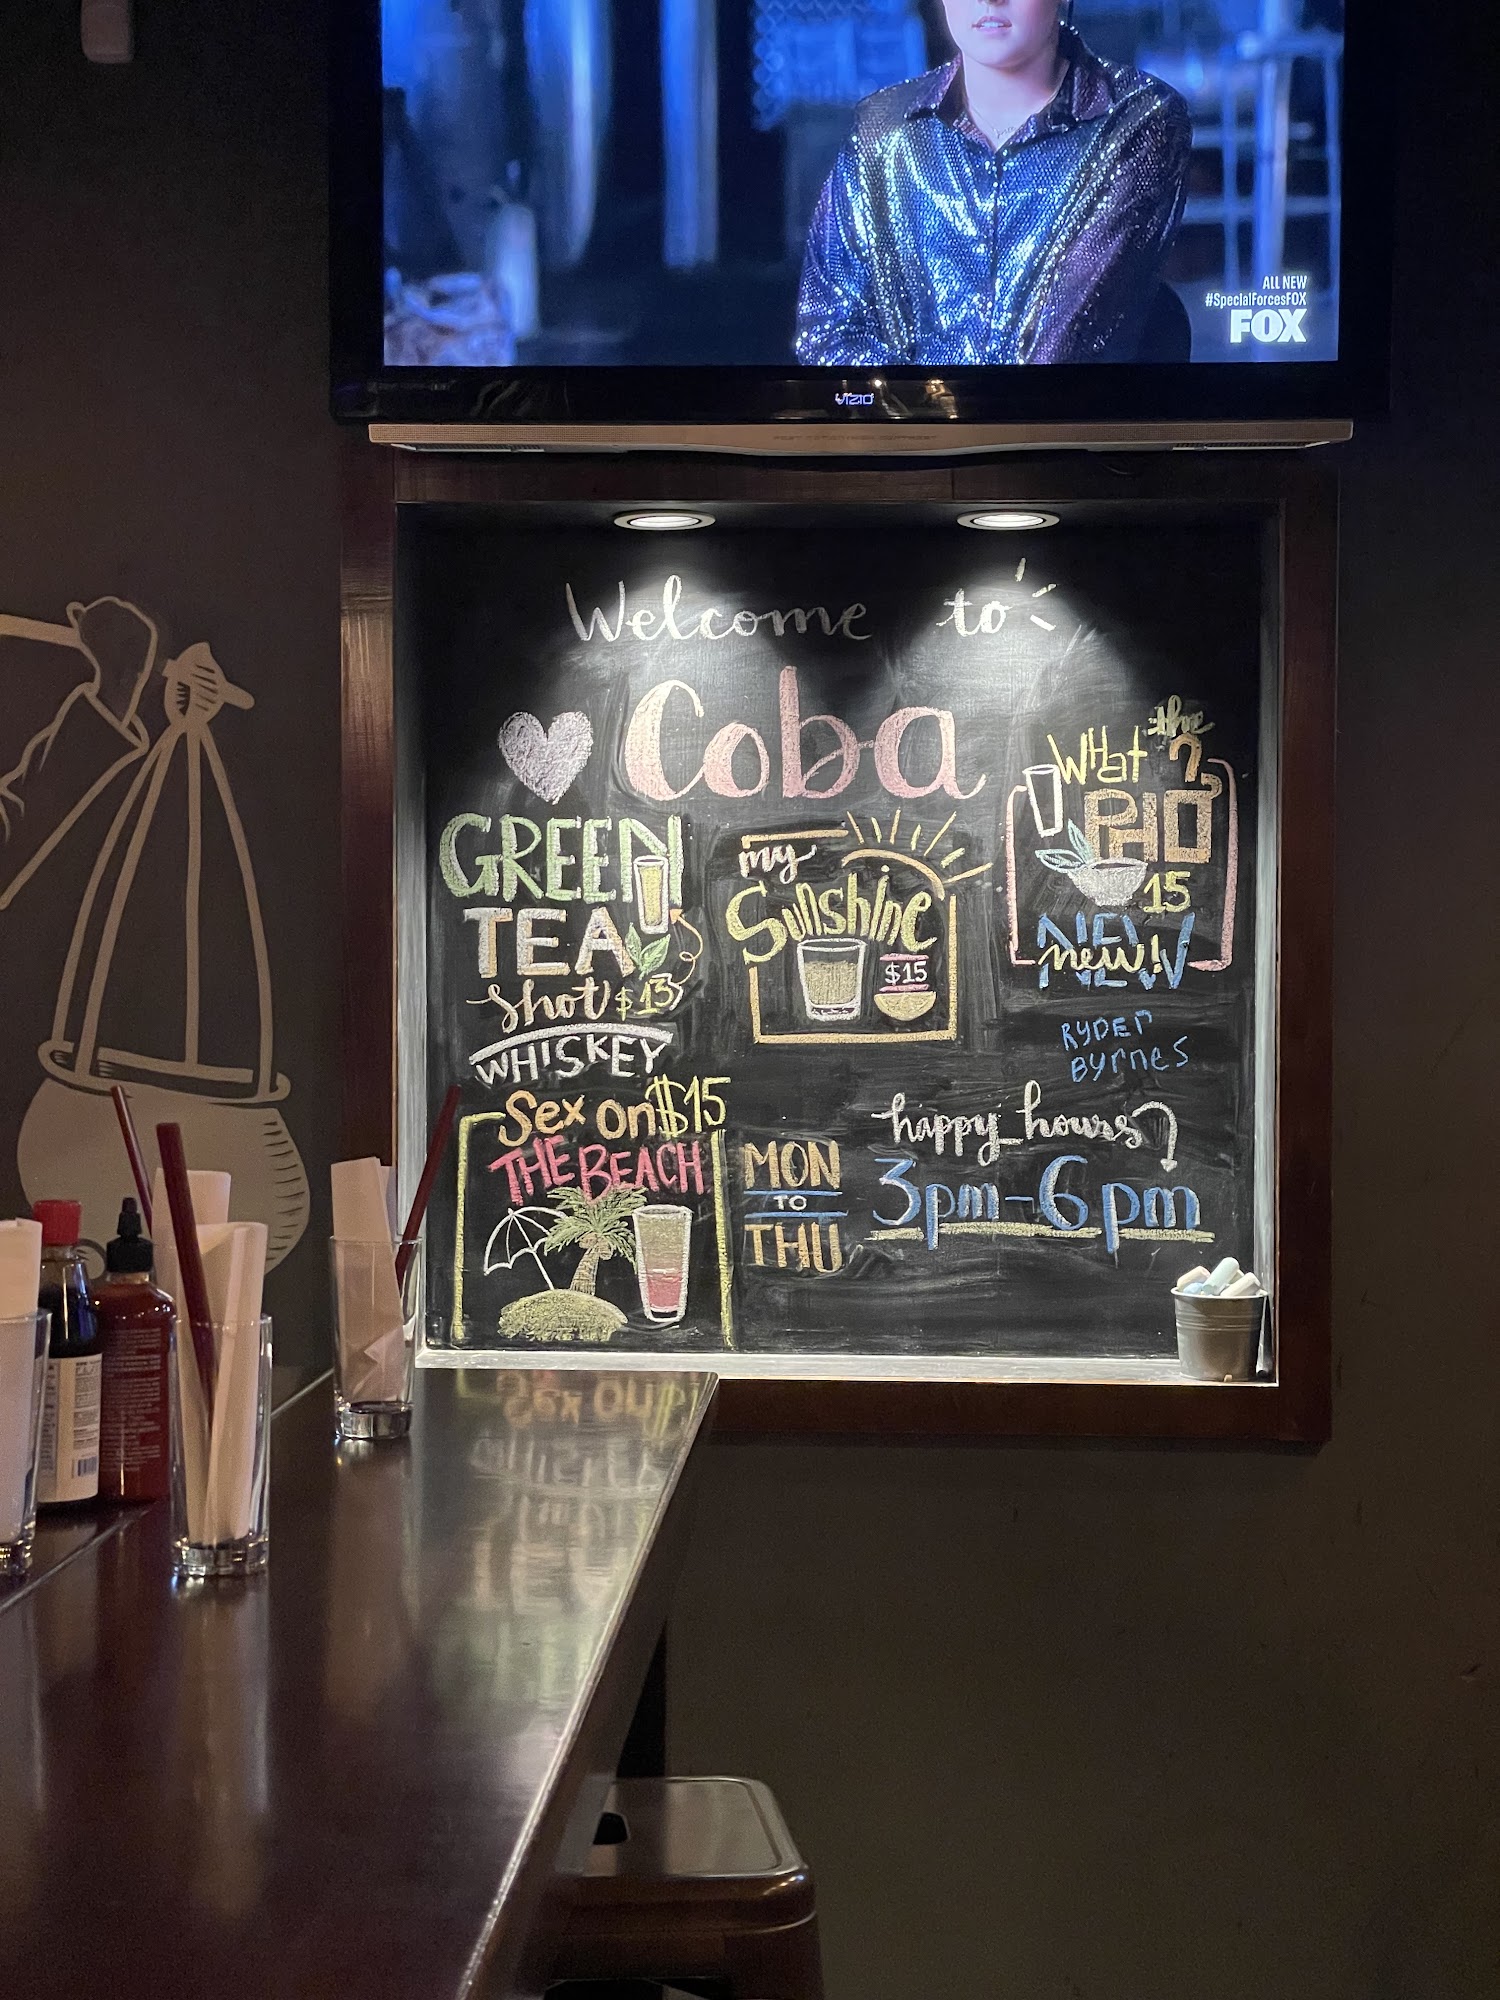 ALL NEW
#SpecialForcesFOX
FOX
VIZIO
Welcome to
Coba
GREEN
TEA
Shot $13
WHISKEY
my
Sunshine
$15
WHat the
PHO ?
15
NEW
new!
RYDEr
Byrnes
Sex on $15
THE BEACH
MON
TO
THU
happy hours
3pm-6pm